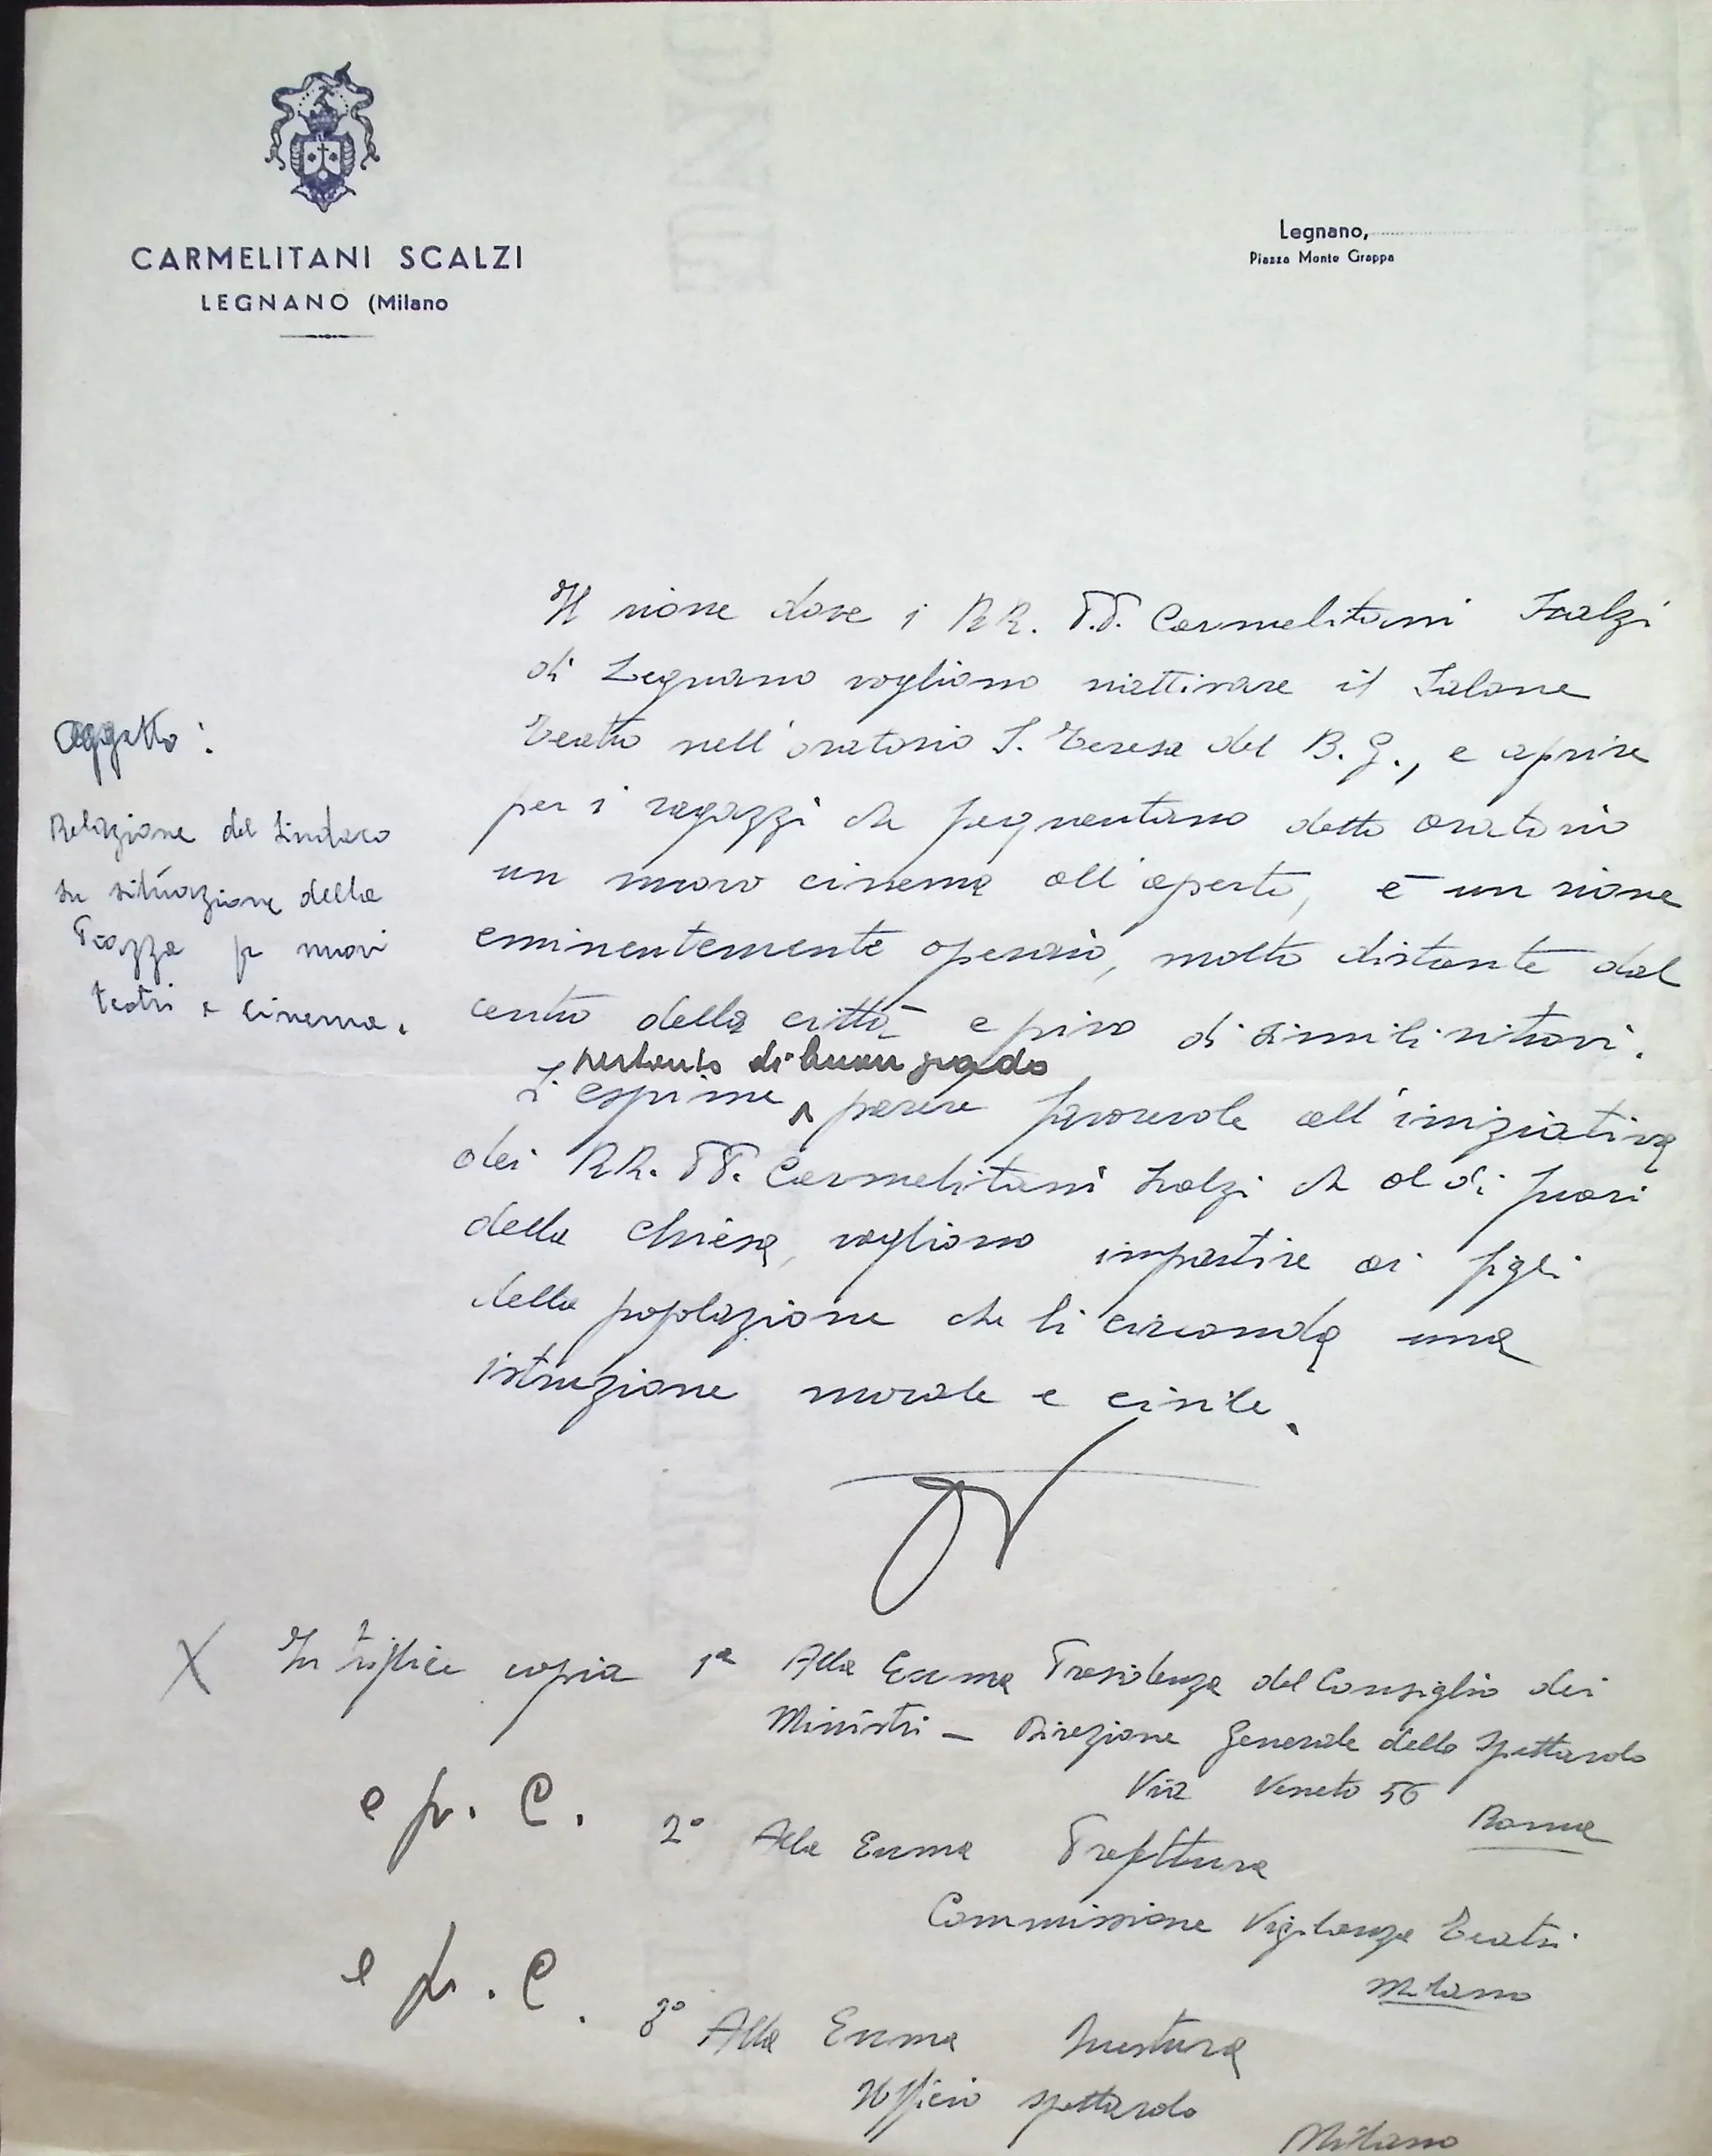 CARMELITANI SCALZI
LEGNANO (Milano
Legnano,
Piazza Monte Grappa
Il rione dove i RR. PP. Carmelitani Scalzi
di Legnano vogliono riattivare il Salone
Teatro nell'oratorio S. Teresa del B. G., e aprire
per i ragazzi che frequentano detto oratorio
un nuovo cinema all'aperto, è un rione
eminentemente operaio, molto distante dal
centro della città e privo di simili ritrovi.
pertanto di buon grado
Si esprime parere favorevole all'iniziativa
dei RR. PP. Carmelitani Scalzi che al di fuori
della Chiesa, vogliono impartire ai figli
della popolazione che li circonda una
istruzione morale e civile.
Oggetto:
Relazione del Sindaco
su situazione della
Piazza pr nuovi
teatri e cinema.
X In triplice copia 1ª Alla Ecc.ma Presidenza del Consiglio dei
Ministri - Direzione Generale dello Spettacolo
Via Veneto 56
Roma
e pr. C.
2° Alla Ecc.ma Prefettura
Commissione Vigilanza Teatri
Milano
e pr. C.
3° Alla Ecc.ma Questura
Ufficio spettacolo
Milano